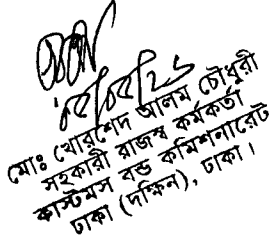 ০৫/০৫/২৬
মোঃ খোরশেদ আলম চৌধুরী
সহকারী রাজস্ব কর্মকর্তা
কাস্টমস বন্ড কমিশনারেট
ঢাকা (দক্ষিন), ঢাকা।